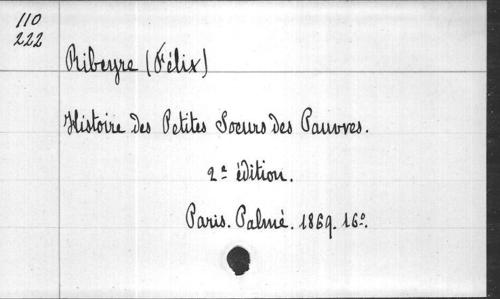 110
222
Ribeyre (Félix)
Histoire des Petites Soeurs des Pauvres.
2e édition.
Paris. Palmé. 1869. 16º.